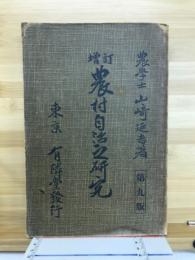 農學士 山崎延吉著
第九版
增訂
農村自治之研究
東京 有隣堂發行